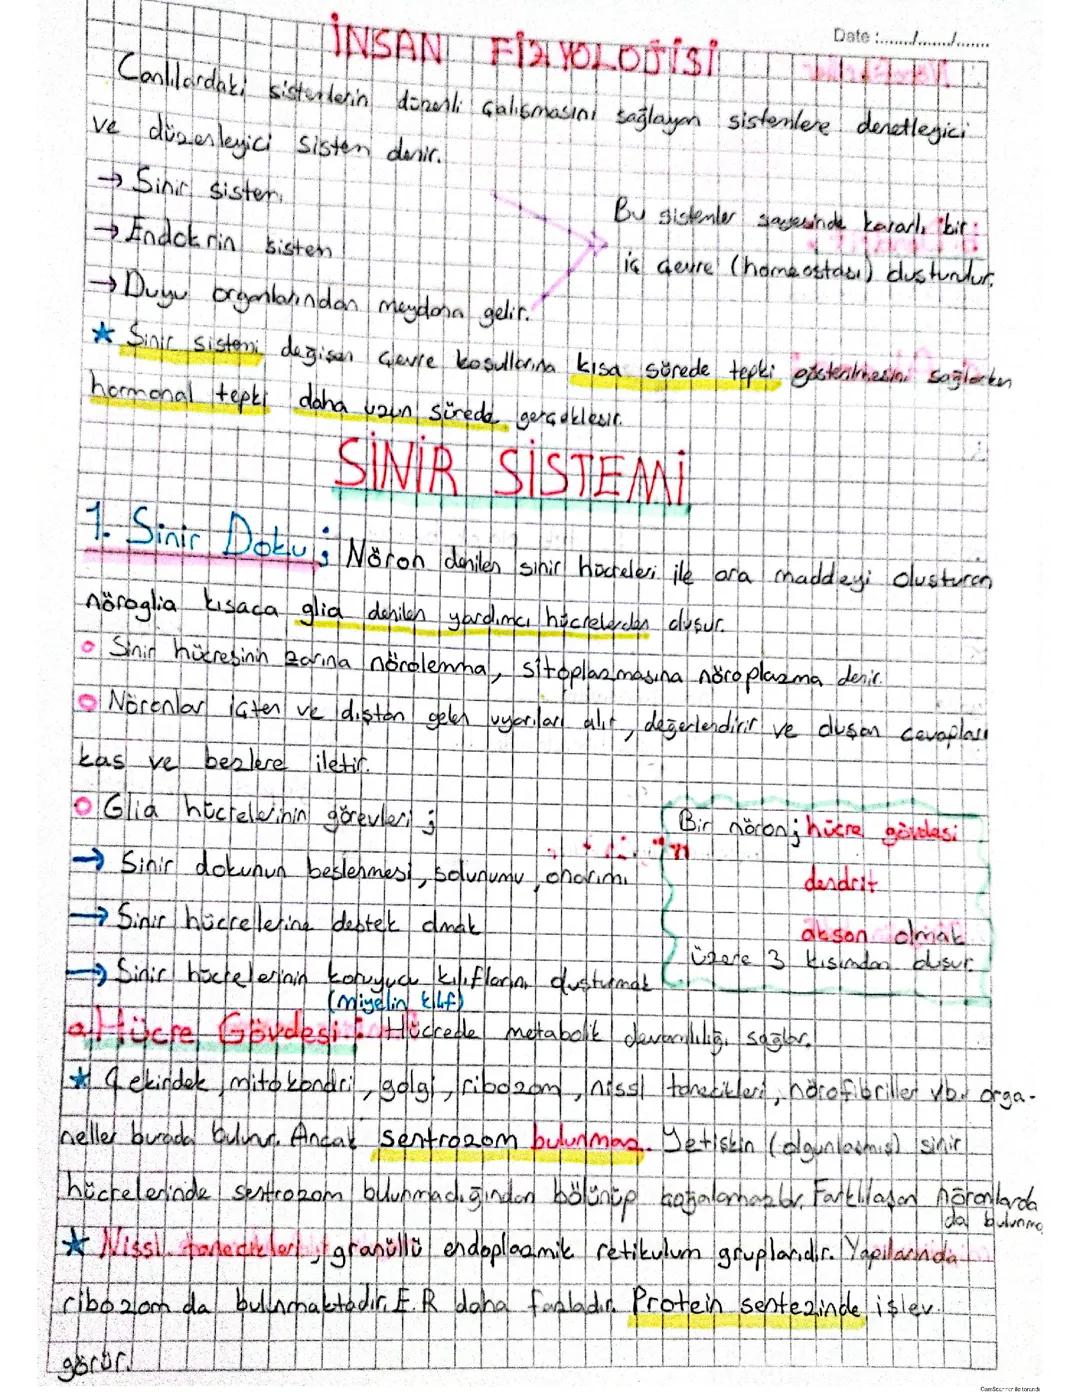 Date :......../......../........
İNSAN FİZYOLOJİSİ
Canlılardaki sistemlerin düzenli çalışmasını sağlayan sistemlere denetleyici
ve düzenleyici sistem denir.
→ Sinir sistemi
→ Endokrin sistem
→ Duyu organlarından meydana gelir.
Bu sistemler sayesinde kararlı bir
iç çevre (homeostasi) oluşturulur.
★ Sinir sistemi değişen çevre koşullarına kısa sürede tepki gösterilmesini sağlarken
hormonal tepki daha uzun sürede gerçekleşir.
SİNİR SİSTEMİ
1. Sinir Doku; Nöron denilen sinir hücreleri ile ara maddeyi oluşturan
nöroglia kısaca glia denilen yardımcı hücrelerden oluşur.
○ Sinir hücresinin zarına nörolemma, sitoplazmasına nöroplazma denir.
○ Nöronlar içten ve dıştan gelen uyarıları alır, değerlendirir ve oluşan cevapları
kas ve bezlere iletir.
○ Glia hücrelerinin görevleri;
→ Sinir dokunun beslenmesi, solunumu, onarımı
→ Sinir hücrelerine destek olmak
→ Sinir hücrelerinin koruyucu kılıflarını oluşturmak
(miyelin kılıf)
Bir nöron; hücre gövdesi
dendrit
akson olmak
üzere 3 kısımdan oluşur.
a) Hücre Gövdesi: Hücrede metabolik devamlılığı sağlar.
★ Çekirdek, mitokondri, golgi, ribozom, nissl tanecikleri, nörofibriller vb. orga-
neller burada bulunur. Ancak sentrozom bulunmaz. Yetişkin (olgunlaşmış) sinir
hücrelerinde sentrozom bulunmadığından bölünüp çoğalamazlar. Farklılaşan nöronlarda
da bulunmaz
★ Nissl tanecikleri; granüllü endoplazmik retikulum gruplarıdır. Yapılarında
ribozom da bulunmaktadır. E.R daha fazladır. Protein sentezinde işlev
görür.
CamScanner ile tarandı